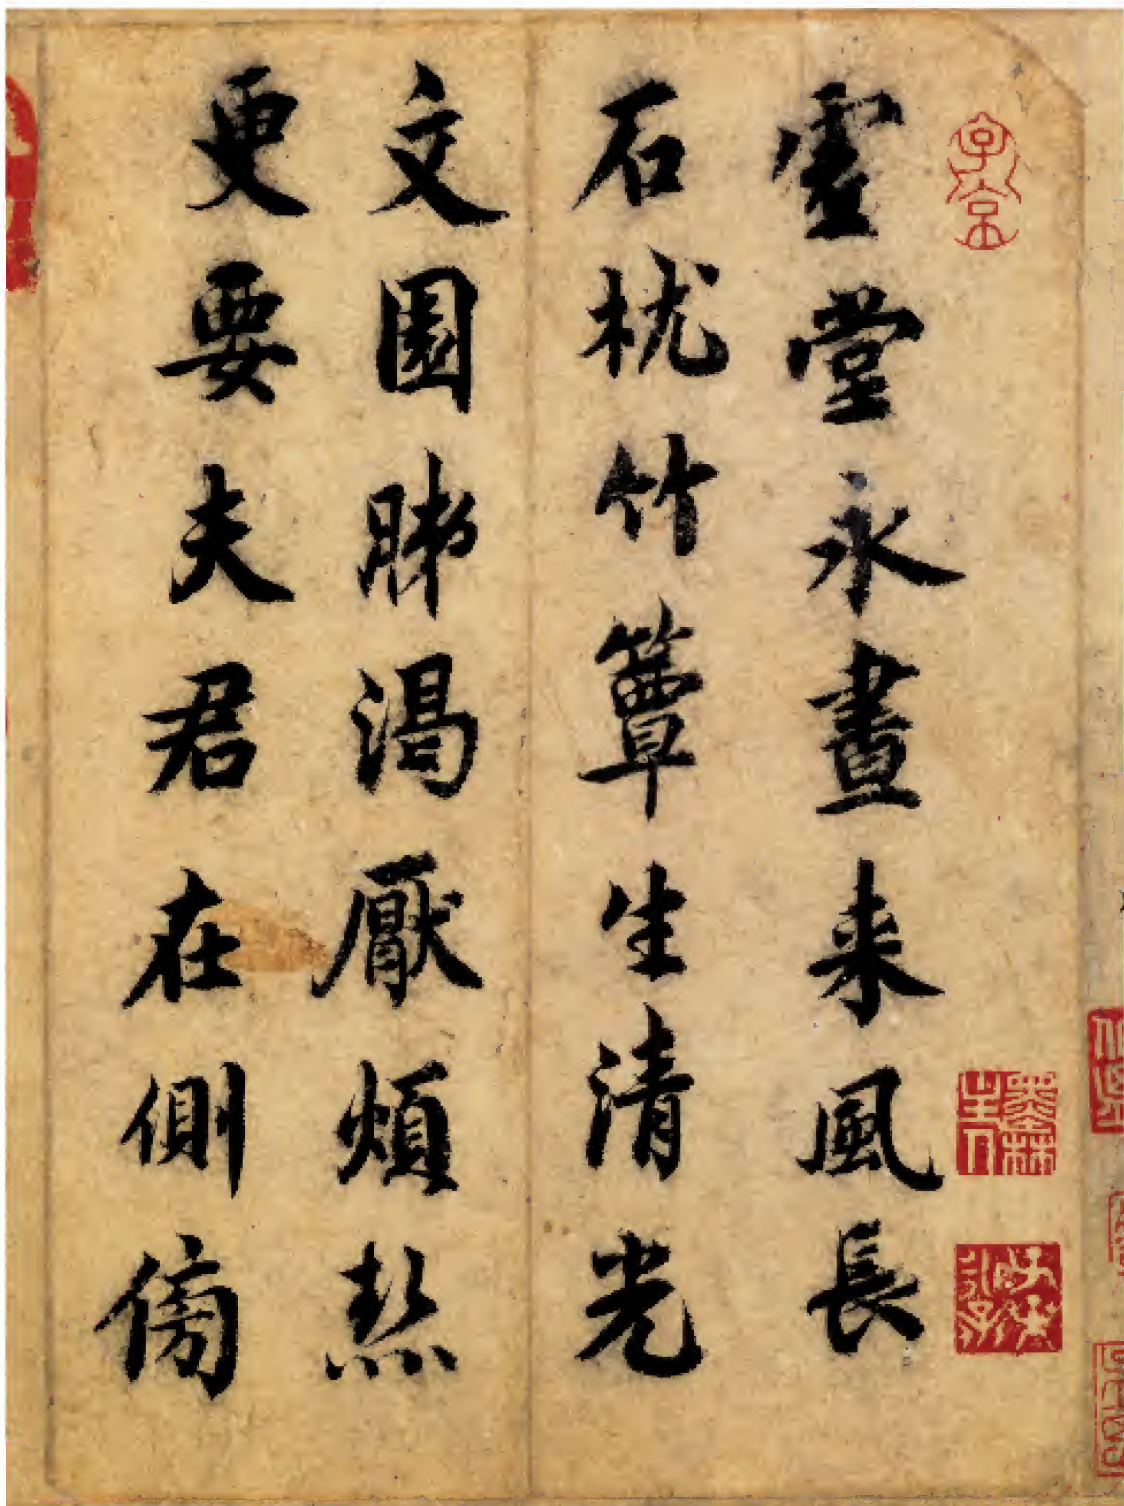 子京
虛堂永晝来風長
石枕竹簟生清光
文園肺渴厭煩熱
更要夫君在側傍